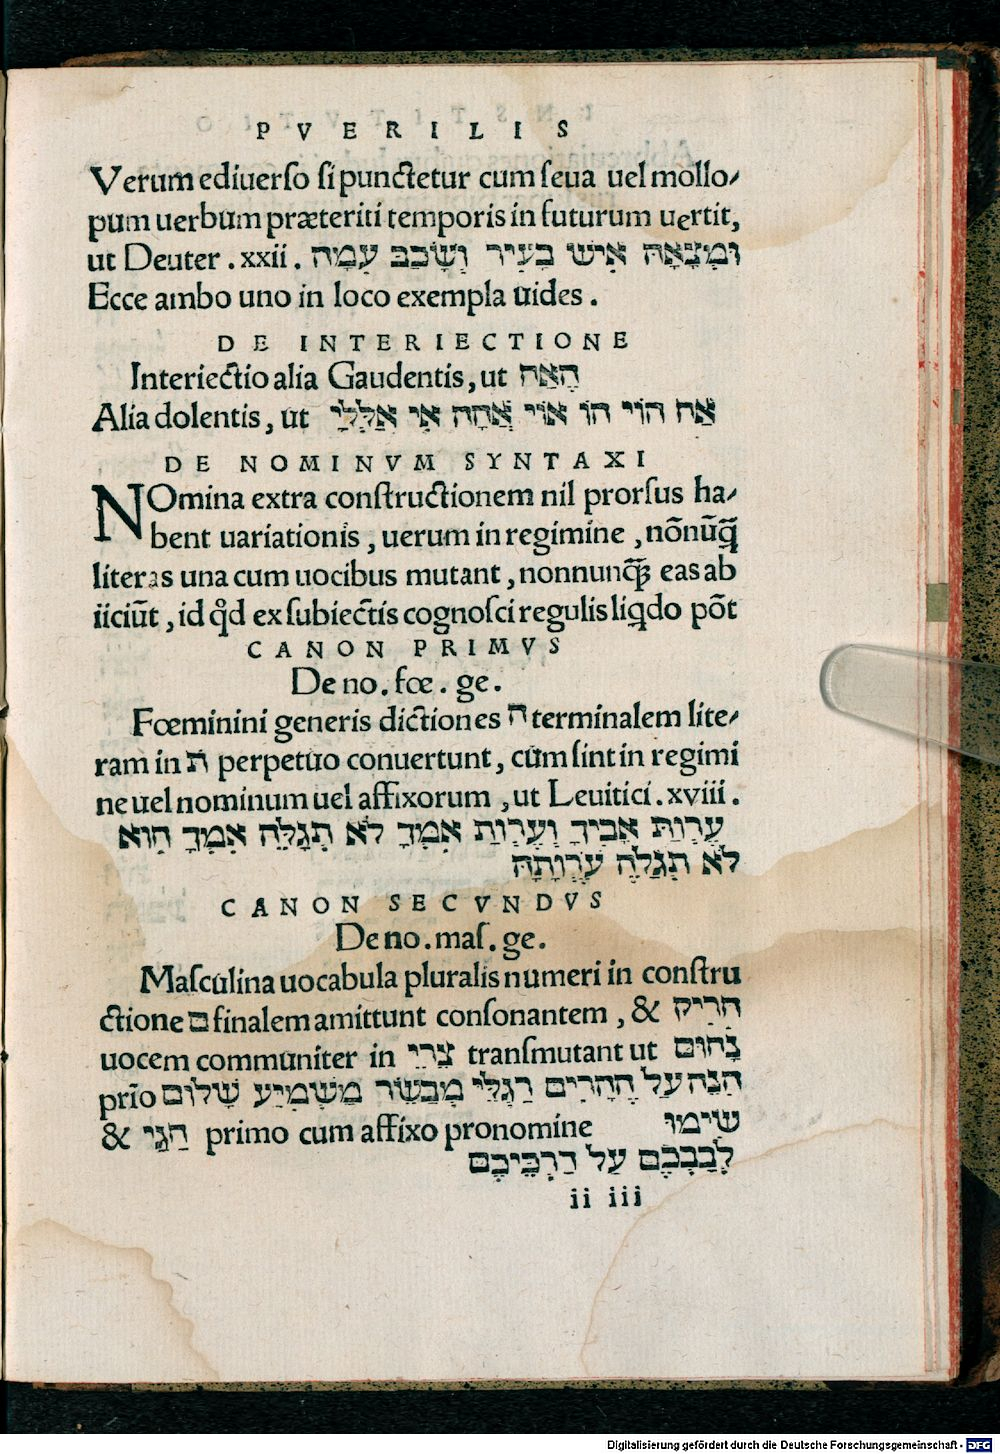 PVERILIS
Verum ediuerſo ſi punctetur cum ſeua uel mollo/
pum uerbum præteriti temporis in futurum uertit,
ut Deuter .xxii. וּמְצָאָהּ אִישׁ בָּעִיר וְשָׁכַב עִמָּהּ
Ecce ambo uno in loco exempla uides.
DE INTERIECTIONE
Interiectio alia Gaudentis, ut הֶאַח
Alia dolentis, ut אַח הוֹי הוֹ אוֹי אֲהָהּ אִי אַלְלַי
DE NOMINVM SYNTAXI
NOmina extra conſtructionem nil prorſus ha/
bent uariationis, uerum in regimine, nõnũq̃
literas una cum uocibus mutant, nonnunq̃ eas ab
iiciũt, id qd̉ ex ſubiectis cognoſci regulis liqdo põt
CANON PRIMVS
De no. fœ. ge.
Fœminini generis dictiones ה terminalem lite/
ram in ת perpetuo conuertunt, cum ſint in regimi
ne uel nominum uel affixorum, ut Leuitici .xviii.
עֶרְוַת אָבִיךָ וְעֶרְוַת אִמְּךָ לֹא תְגַלֵּה אִמְּךָ הִוא
לֹא תְגַלֶּה עֶרְוָתָהּ
CANON SECVNDVS
De no. maſ. ge.
Maſculina uocabula pluralis numeri in conſtru
ctione ם finalem amittunt conſonantem, & חִרִיק
uocem communiter in צֵרֵי tranſmutant ut נַחוּם
prĩo הִנֵּה עַל הֶהָרִים רַגְלֵי מְבַשֵּׂר מַשְׁמִיעַ שָׁלוֹם
& חַגַּי primo cum affixo pronomine שִׂימוּ
לְבַבְכֶם עַל דַּרְכֵיכֶם
ii iii
Digitalisierung gefördert durch die Deutsche Forschungsgemeinschaft - DFG